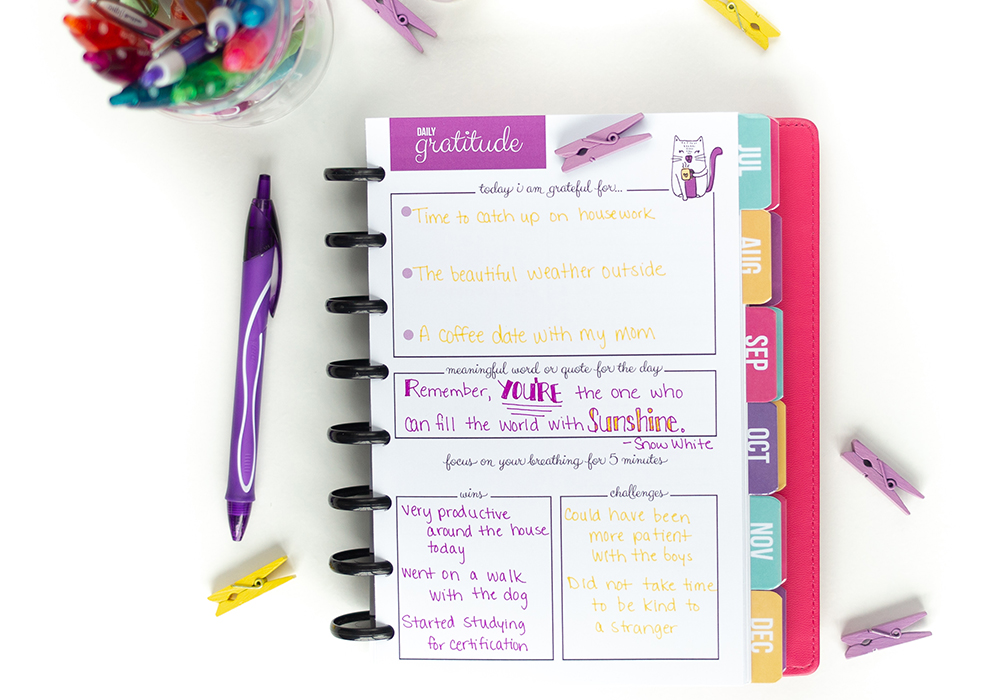 DAILY
gratitude
today i am grateful for...
Time to catch up on housework
The beautiful weather outside
A coffee date with my mom
meaningful word or quote for the day
Remember, YOU'RE the one who
can fill the world with Sunshine.
- Snow White
focus on your breathing for 5 minutes
wins
Very productive
around the house
today
went on a walk
with the dog
Started studying
for certification
challenges
Could have been
more patient
with the boys
Did not take time
to be kind to
a stranger
JUL
AUG
SEP
OCT
NOV
DEC